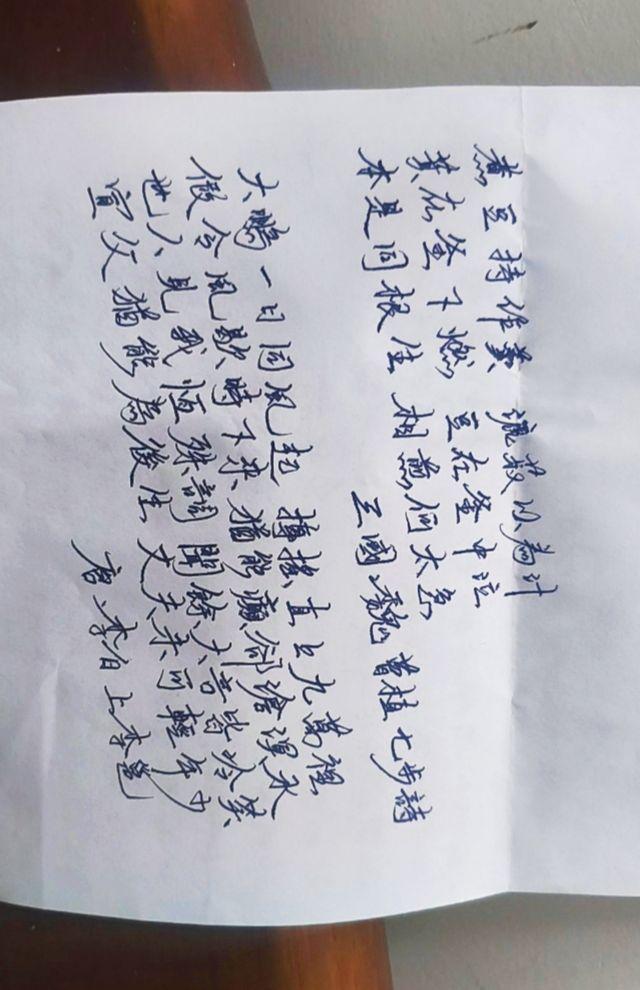 煮豆持作羹 漉菽以為汁
萁在釜下燃 豆在釜中泣
本是同根生 相煎何太急
三國 魏 曹植 七步詩
大鵬一日同風起 摶搖直上九萬裡
假令風歇時下來 猶能卻滄溟水
世人見我恆殊調 聞餘大言皆冷笑
宣父猶能為後生 丈夫未可輕年少
唐 李白 上李邕